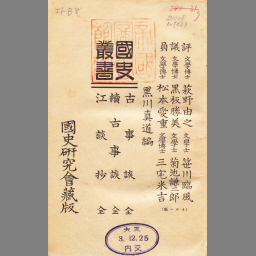 評議員
文學博士 萩野由之
文學博士 黒板勝美
文學博士 松本愛重
文學士 笹川臨風
文學士 菊池謙二郎
文學博士 三宅米吉
黒川真道編
國史叢書
古事談 全
續古事談 全
江談抄 全
國史研究會藏版
大正
3.12.25
内交